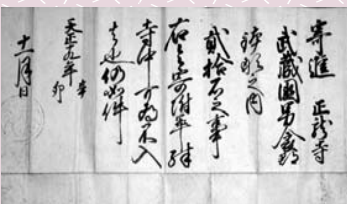 寄進 正龍寺
武蔵國男衾郡
鉢形之内
貳拾石之事
右令寄附畢殊
寺中可為不入
者也仍如件
天正十九年 辛卯
十一月日